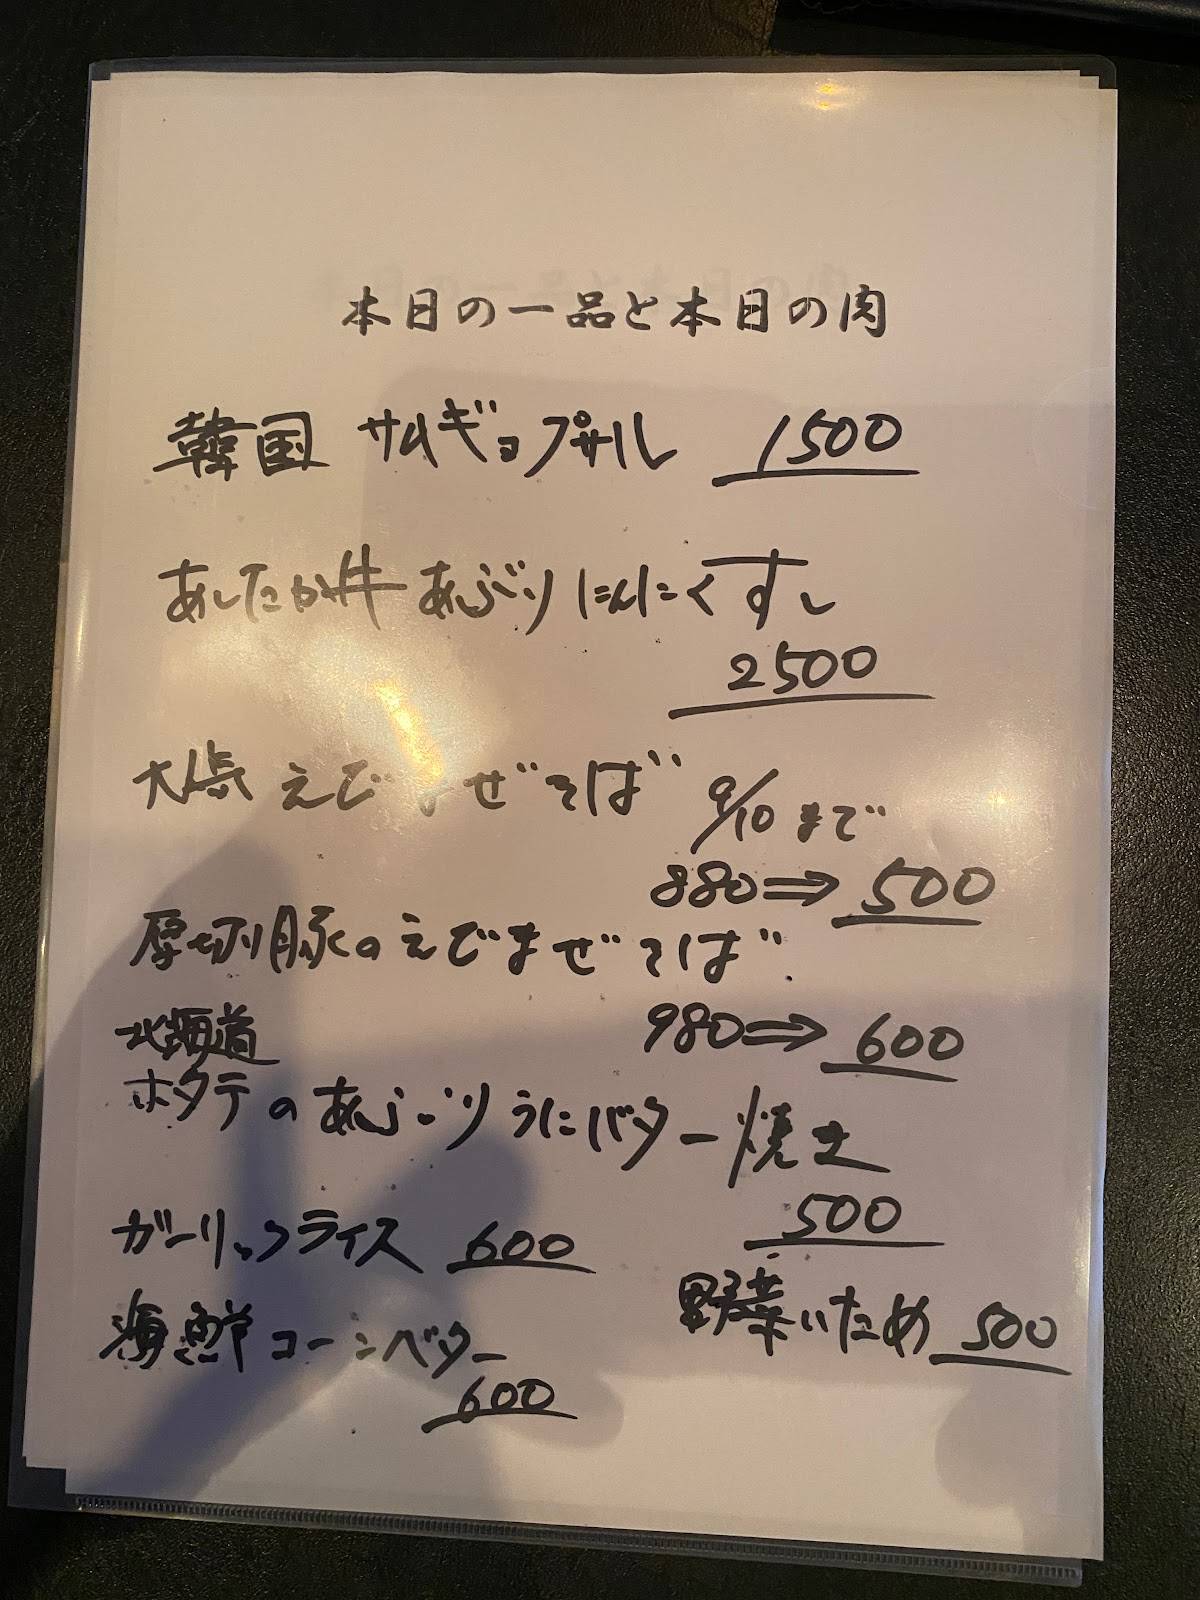 本日の一品と本日の肉
韓国 サムギョプサル 1500
あしたか牛 あぶりにんにくすし
2500
えびまぜそば 9/10まで
880⇒500
厚切り豚のえびまぜそば
980⇒600
北海道
ホタテのあぶりうにバター焼き
500
ガーリックライス 600
野菜いため 500
海鮮コーンバター
600